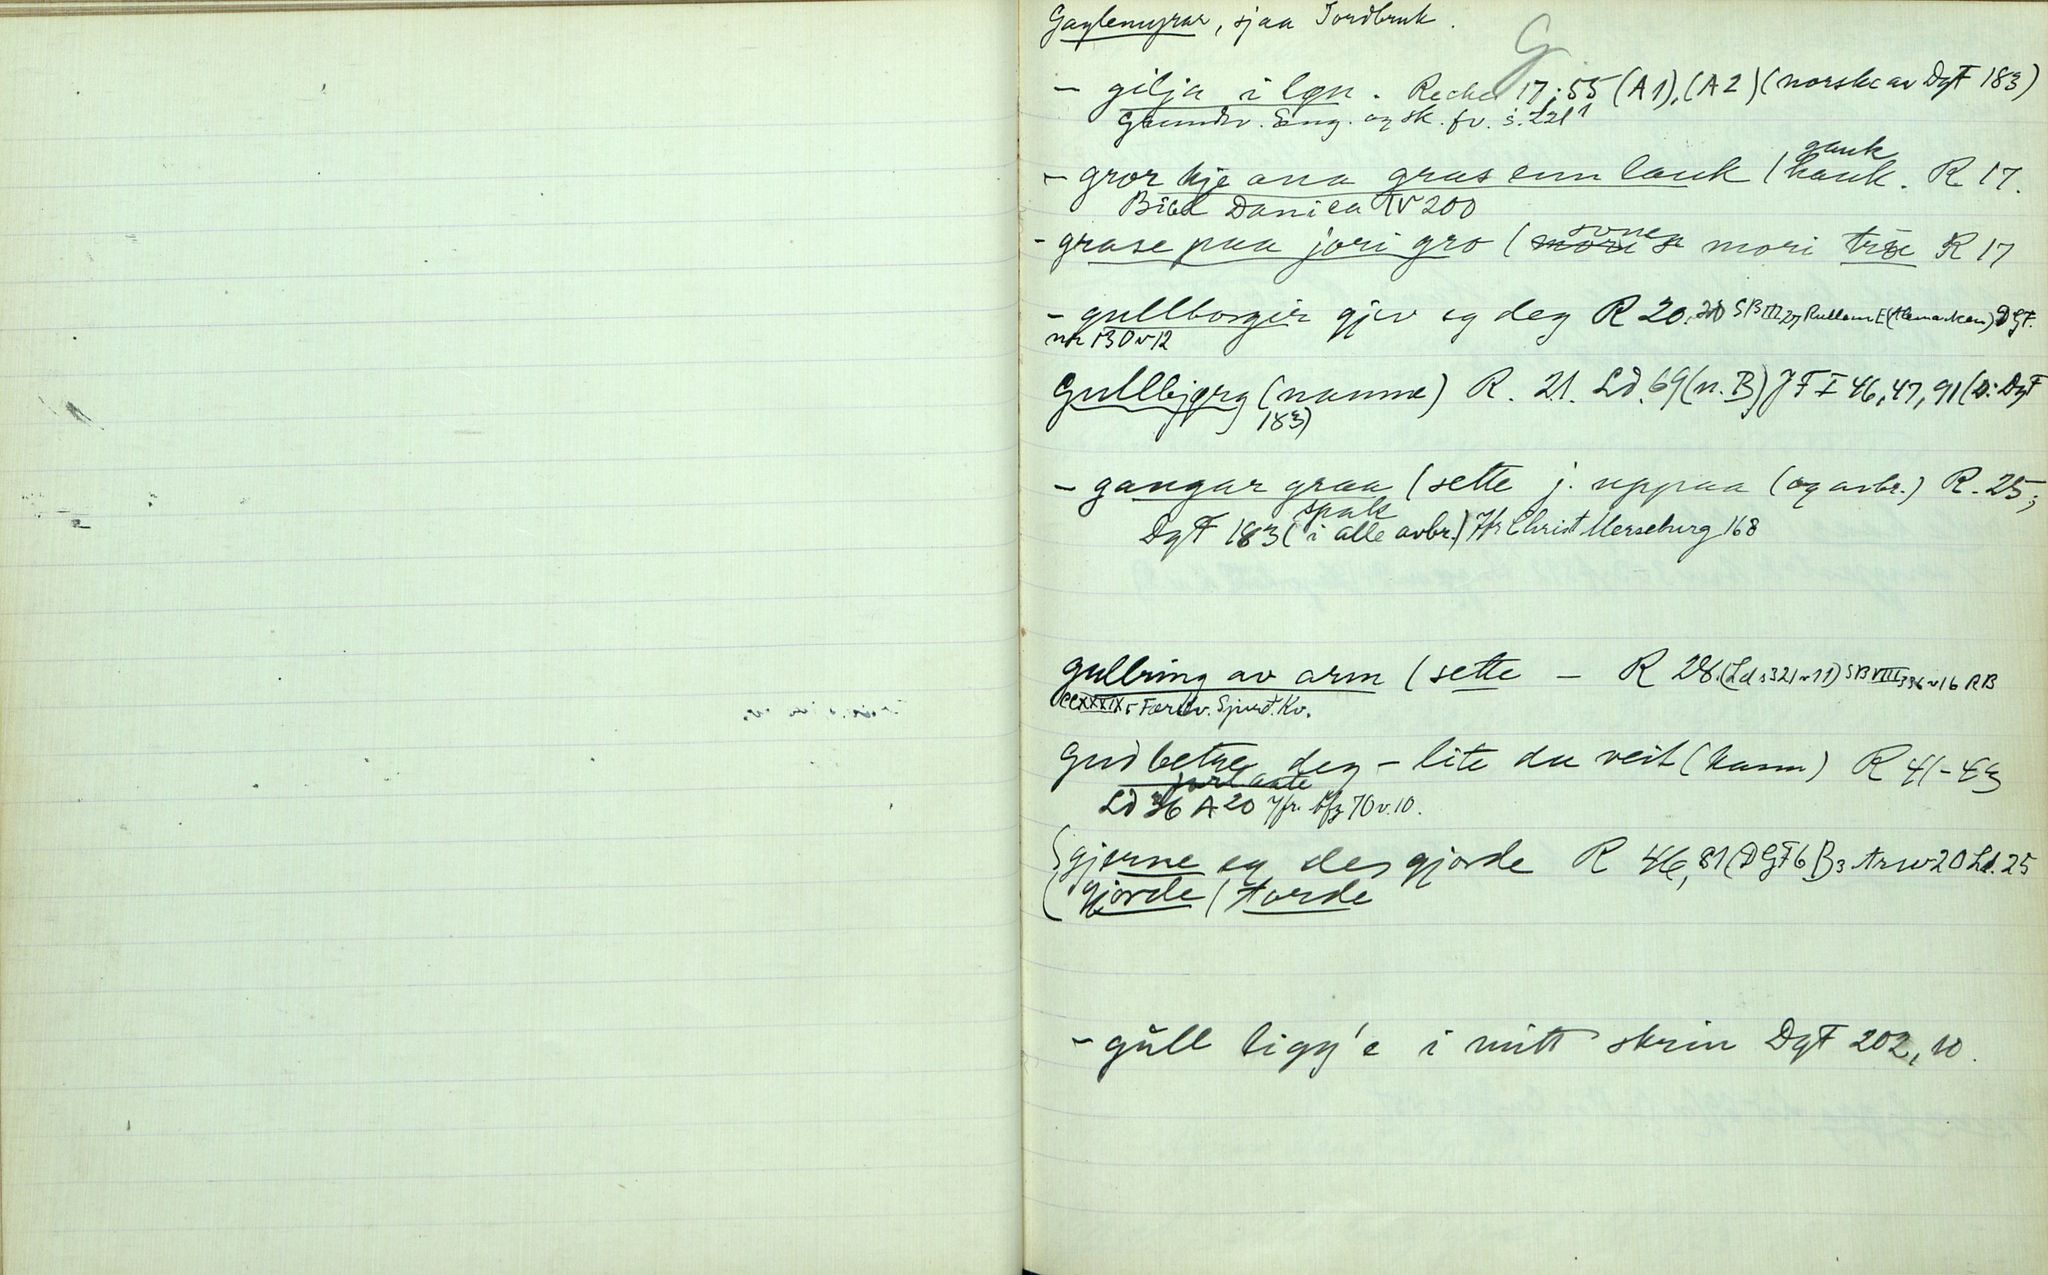 Gaglemyrar, sjaa Jordbruk.
G
- gilja i løn. Recke 17:55 (A1), (A2) (norske av DgF 183)
Grundtv. Eng. og sk. fv. s. 221¹
gauk
- gror kje ana gras enn lauk (hauk. R 17.
Bibl Danica IV 200
svnen
- grase paa jori gro ( mori trøe R 17
- gullborgir gjev eg deg R 20. SB III, 27 DgF.
nr 130 v 12
Gullbjørg (namne) R. 21. Ld. 69 (n. B) JF I 46, 47, 91 (D: DgF
183)
- gangar graa (sette j. uppaa (og avbr.) R. 25;
spak
DgF 183 (i alle avbr.) Jfr Christ Merseburg 168
gullring av arm (sette - R 28. (Ld s 321 v 11) SB VIII 336 v 16 RB
CCXXXIX Færøv. Sjurd. Kv.
Gud betre deg - lite du veit (kann) R 41-43
jarl aate
Ld 36 A 20 Jfr. 70 v. 10.
gjerne eg des gjorde R 46, 81 (DGF 6 B3 Arw 20 Ld. 25
gjorde (torde
- gull ligg'e i mitt skrin DgF 202, 10.